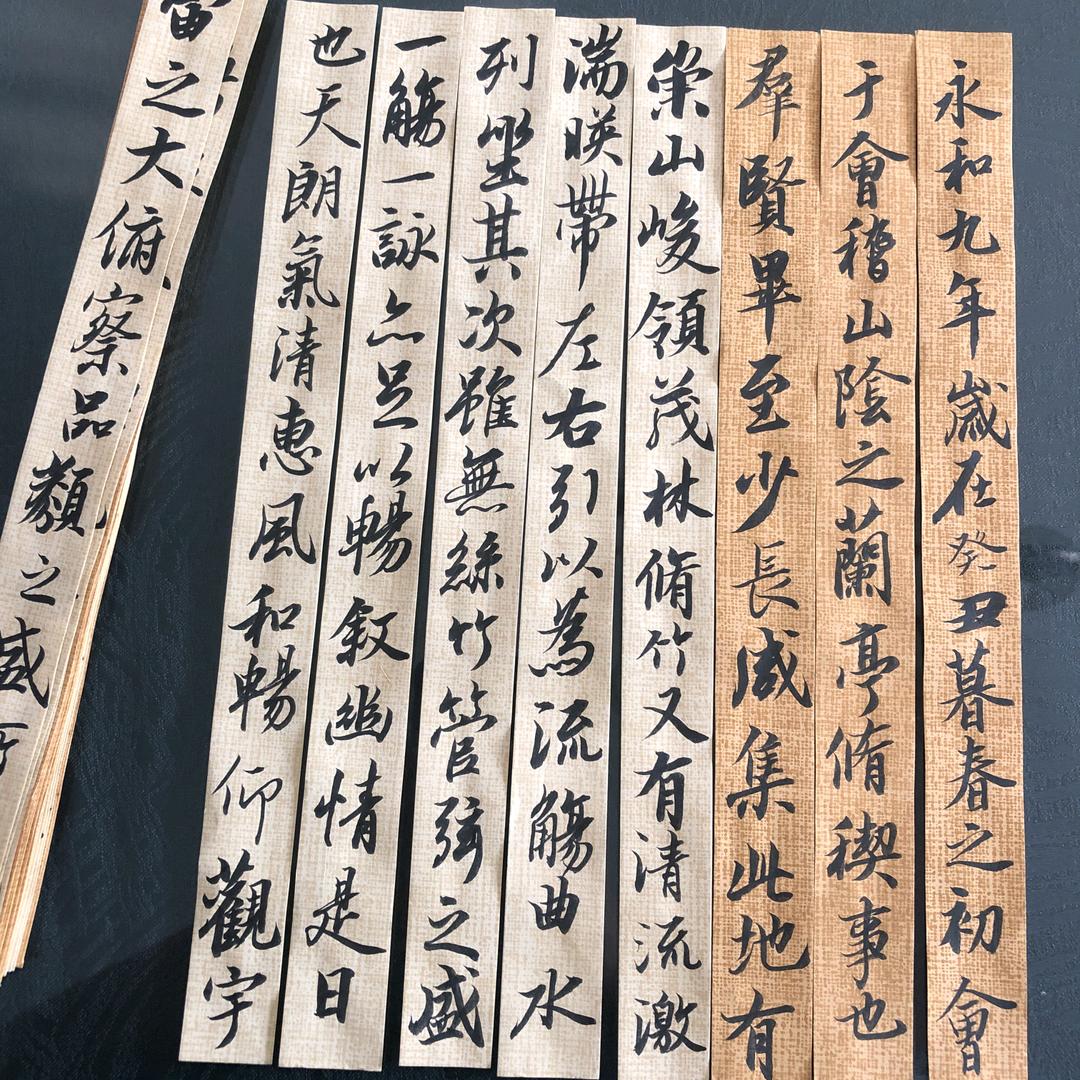 永和九年歲在癸丑暮春之初會
于會稽山陰之蘭亭脩稧事也
羣賢畢至少長咸集此地有
崇山峻領茂林脩竹又有清流激
湍暎帶左右引以為流觴曲水
列坐其次雖無絲竹管弦之盛
一觴一詠亦足以暢叙幽情是日
也天朗氣清惠風和暢仰觀宇
宙之大俯察品類之盛所